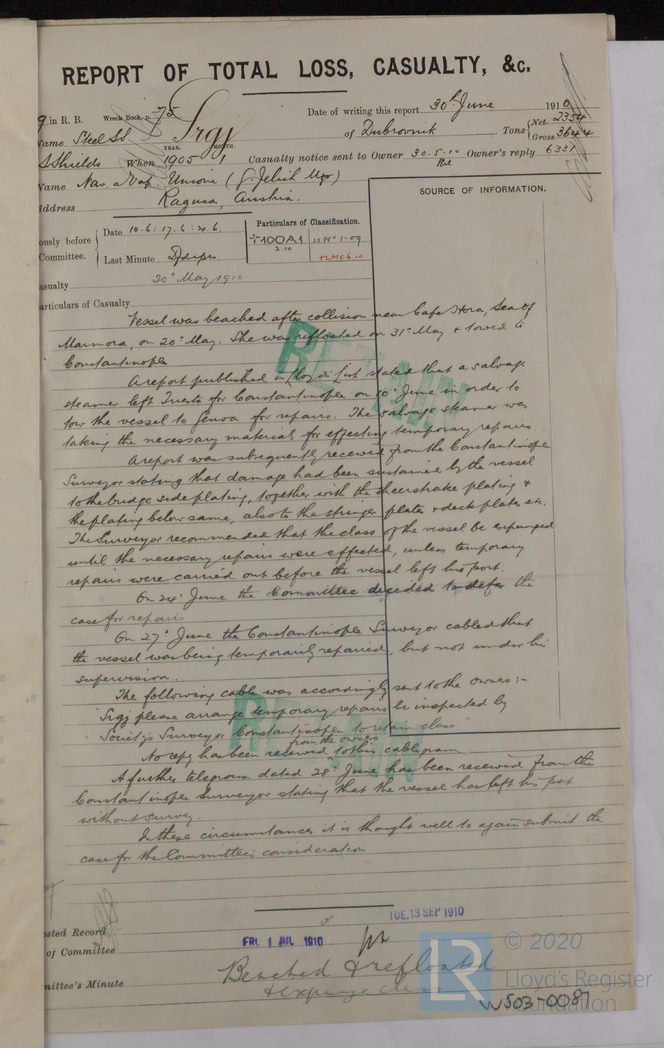 REPORT OF TOTAL LOSS, CASUALTY, &c.
in R. B. Wreck Book, p. 75
Date of writing this report 30th June 1910
Name Steel SS Srgj of Dubrovnik Tons { Net 2354
Gross 3644
YEAR. MONTH.
S Shields When 1905 1 Casualty notice sent to Owner 30.5.10 Owner's reply 6331
Name Nav. a Vap. Unione (G. Jelich Mgr)
Address Ragusa, Austria.
SOURCE OF INFORMATION.
ously before Committee. { Date 10.6: 17.6: 24.6.
Last Minute Defer
Particulars of Classification.
+100A1
2.10
SS No 1-09
+LMC 6.10
asualty 20th May 1910
articulars of Casualty
Vessel was beached after collision near Cape Hora, Sea of
Marmora, on 20th May. She was refloated on 31st May & towed to
Constantinople
A report published in Lloyd's List stated that a salvage
steamer left Trieste for Constantinople on 10th June in order to
tow the vessel to Genoa for repairs. The salvage steamer was
taking the necessary material for effecting temporary repairs
A report was subsequently received from the Constantinople
Surveyor stating that damage had been sustained by the vessel
to the bridge side plating, together with the sheerstrake plating &
the plating below same, also to the stringer plates & deck plates etc.
The Surveyor recommended that the class of the vessel be expunged
until the necessary repairs were effected, unless temporary
repairs were carried out before the vessel left his port.
On 24th June the Committee decided to defer the
case for repairs
On 27th June the Constantinople Surveyor cabled that
the vessel was being temporarily repaired, but not under his
supervision.
The following cable was accordingly sent to the owners:-
"Srgj please arrange temporary repairs be inspected by
Society's Surveyor Constantinople to retain class
from the owners
No reply has been received to this cablegram
A further telegram dated 28th June has been received from the
Constantinople Surveyor stating that the vessel has left his port
without survey.
In these circumstances it is thought well to again submit the
case for the Committee's consideration
sted Record
of Committee
FRI. 1 JUL 1910
TUE. 13 SEP 1910
mittee's Minute
Beached & refloated
& expunge class
LR
© 2020
Lloyd's Register
Foundation
W503-0087